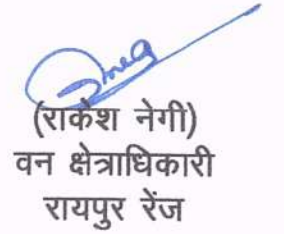 (राकेश नेगी)
वन क्षेत्राधिकारी
रायपुर रेंज